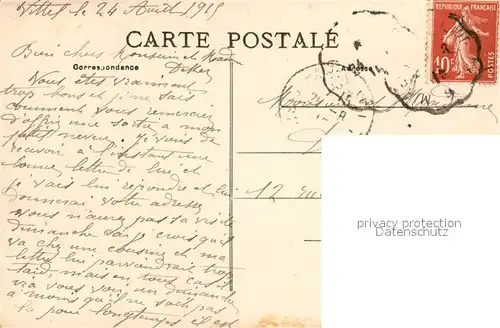 Vittel le 24 Août 1915
CARTE POSTALE
Correspondance
Adresse
REPUBLIQUE FRANÇAISE
10c
POSTES
Bien chers Monsieur et Mad
Vous êtes vraiment
trop bons et je ne sais
comment vous remercier
d'offrir une sortie à mon
petit neveu. Je viens de
recevoir à l'instant une
bonne lettre de lui et
je vais lui répondre et lui
donnerai votre adresse
vous n'aurez pas sa visite
dimanche car je crois qu'il
va chez une cousine et ma
lettre lui parviendrait trop
tard, mais en tous cas il
ira vous voir un dimanche
à moins qu'il ne soit pas
là pour longtemps il est
12 rue
privacy protection
privacy protection